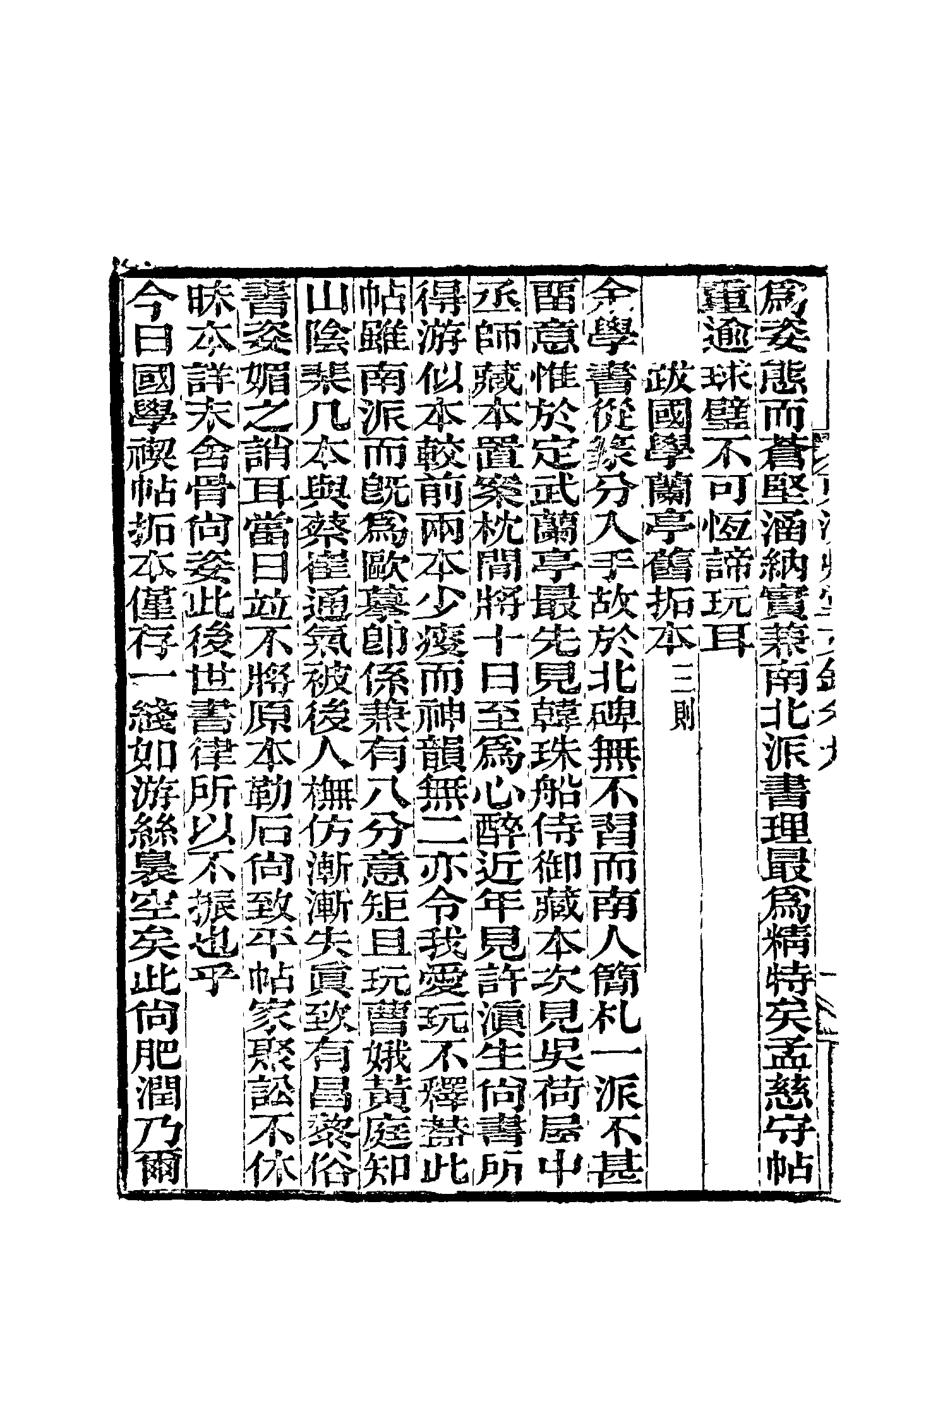 為姿態而蒼堅涵納實兼南北派書理最為精特矣孟慈守帖
重逾球璧不可恆諦玩耳
跋國學蘭亭舊拓本三則
余學書從篆分入手故於北碑無不習而南人簡札一派不甚
畱意惟於定武蘭亭最先見韓珠船侍御藏本次見吳荷屋中
丞師藏本置案枕閒將十日至為心醉近年見許滇生尙書所
得游似本較前兩本少瘦而神韻無二亦令我愛玩不釋蓋此
帖雖南派而旣為歐摹卽係兼有八分意矩且玩曹娥黃庭知
山陰棐几本與蔡崔通氣被後人橅仿漸漸失眞致有昌黎俗
書姿媚之誚耳當日竝不將原本勒石尙致平帖家聚訟不休
昧本詳末舍骨尙姿此後世書律所以不振也乎
今日國學禊帖拓本僅存一綫如游絲裊空矣此尙肥潤乃爾